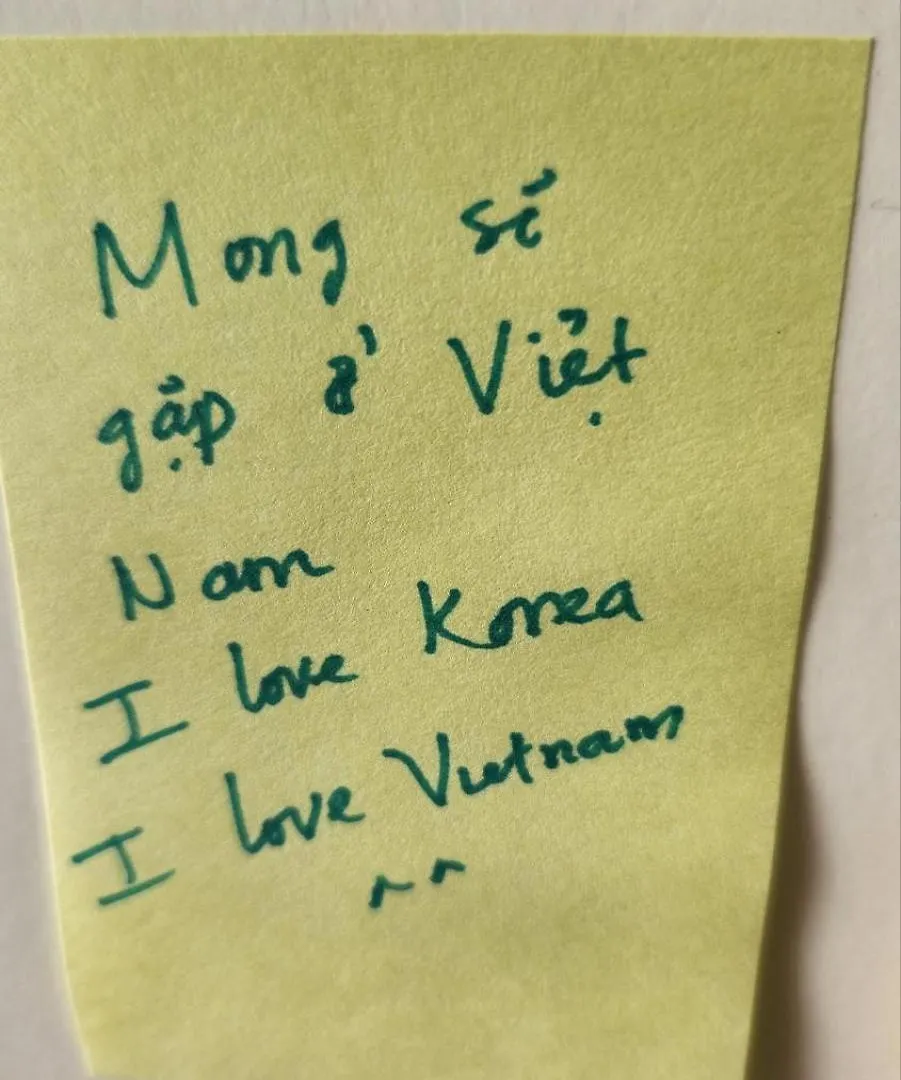 Mong sẽ
gặp ở Việt
Nam
I love Korea
I love Vietnam
^^